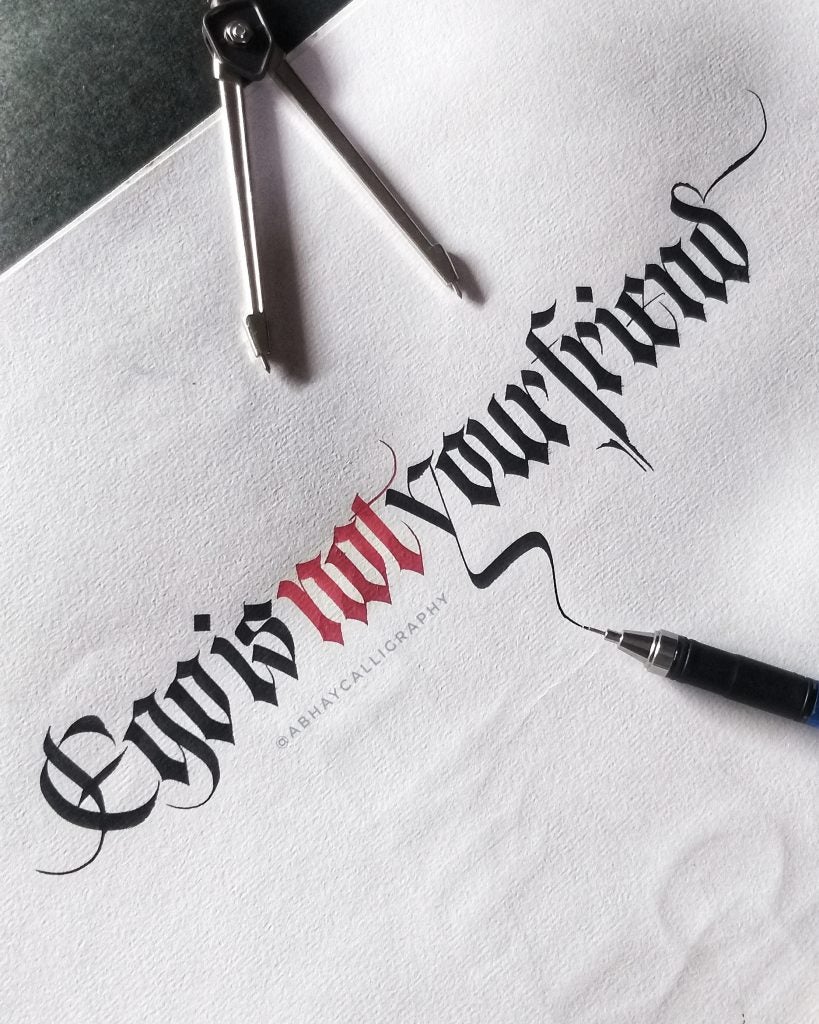 Ego is not your friend
@ABHAYCALLIGRAPHY